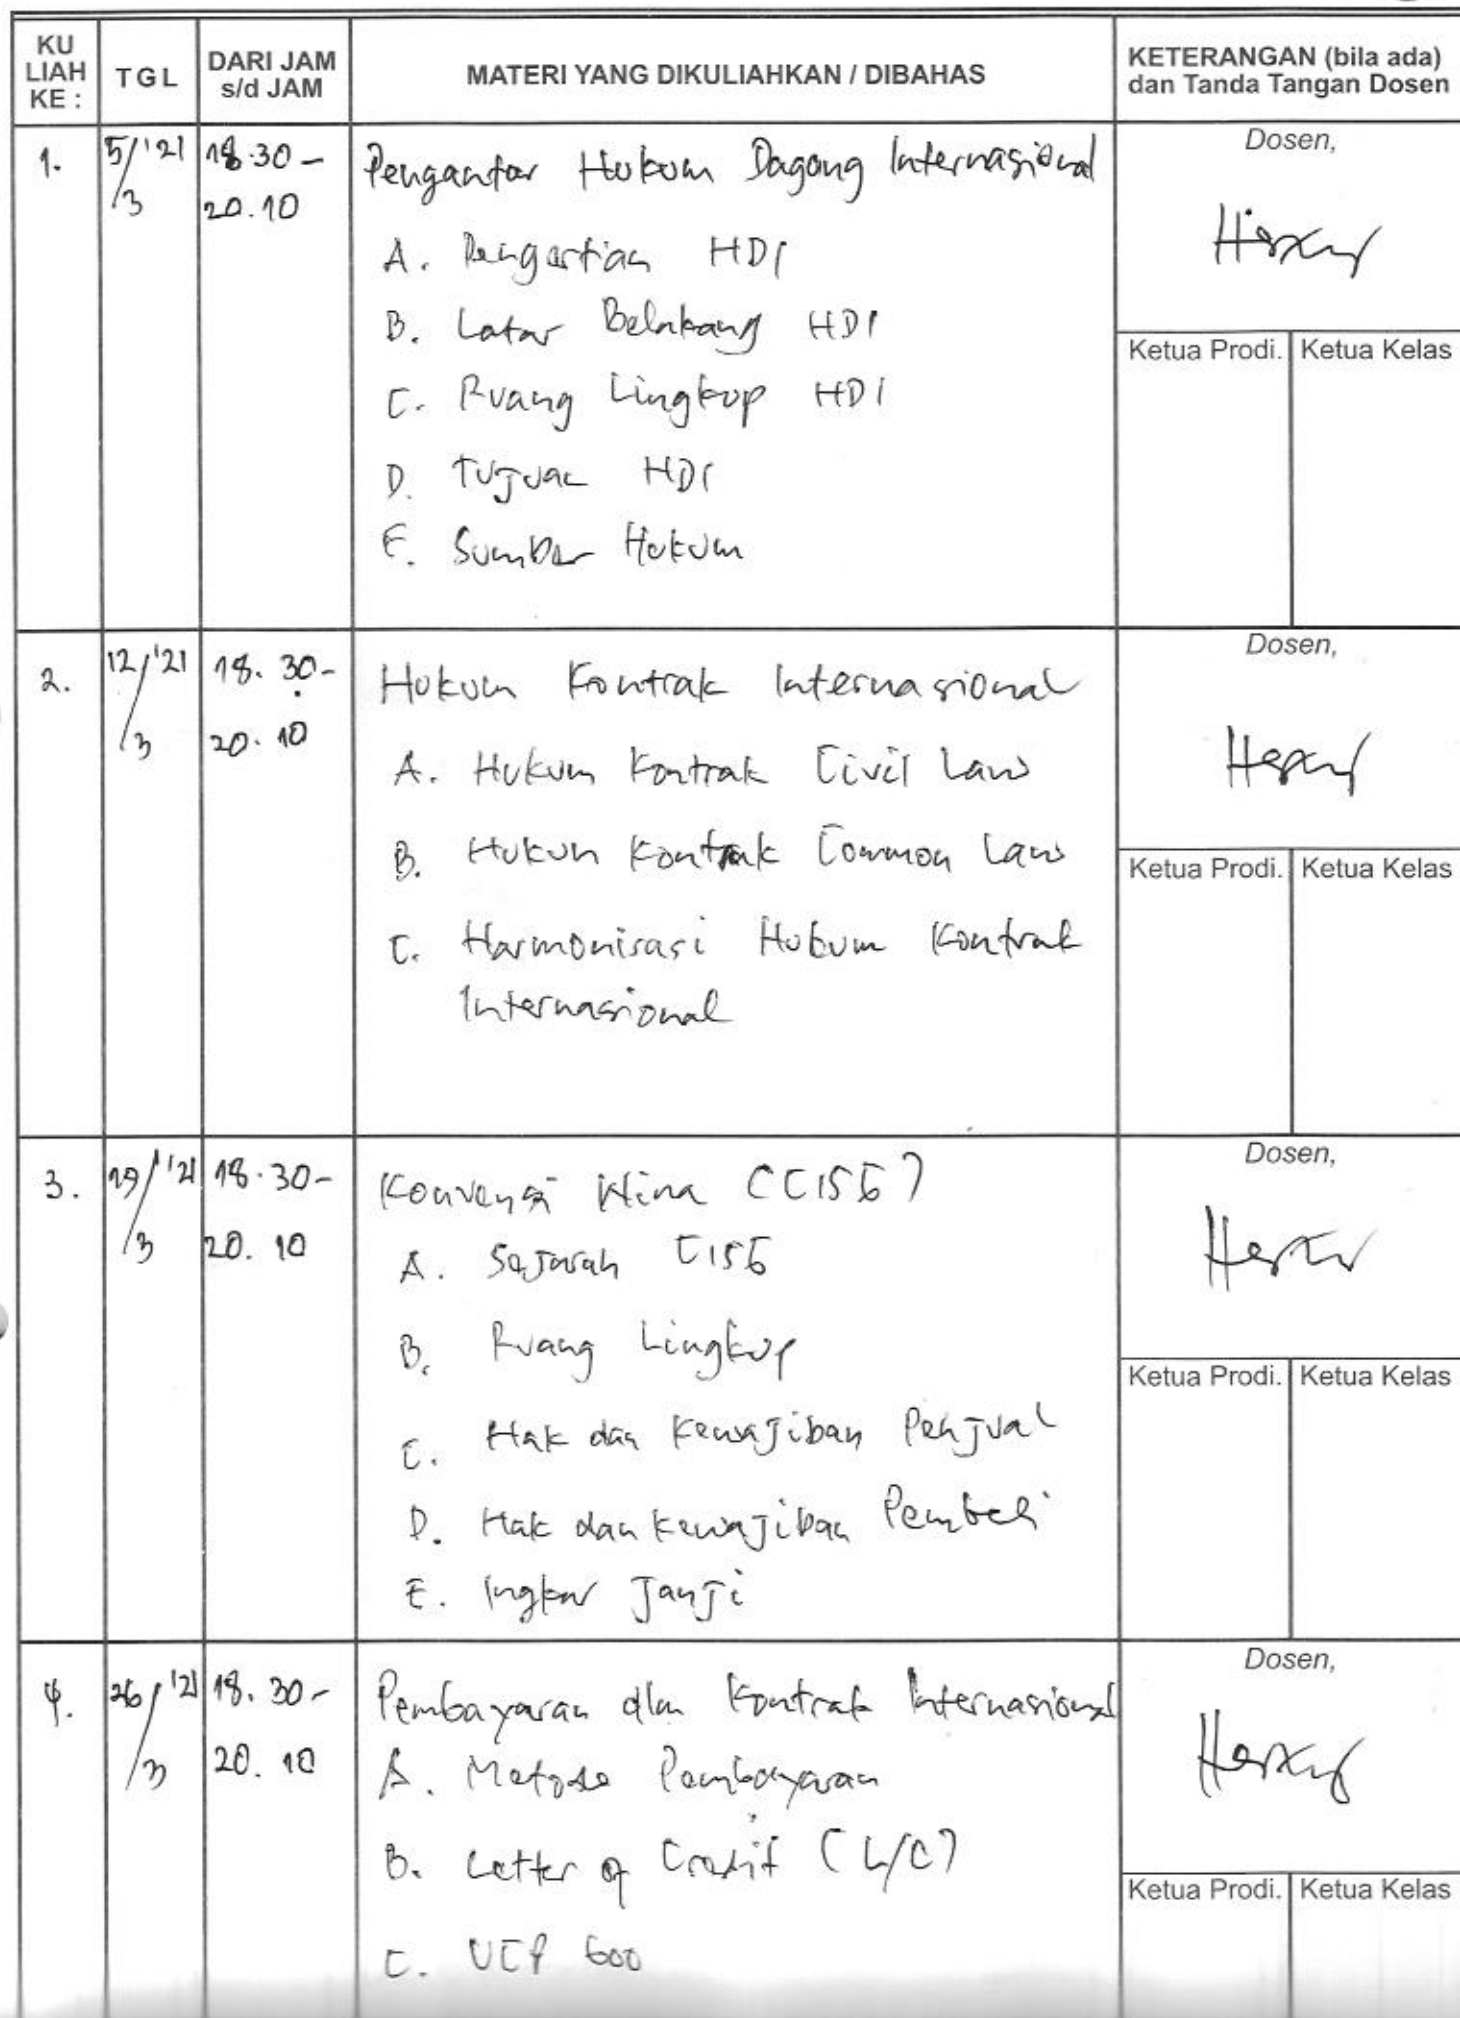 KU LIAH KE :
TGL
DARI JAM s/d JAM
MATERI YANG DIKULIAHKAN / DIBAHAS
KETERANGAN (bila ada) dan Tanda Tangan Dosen
1.
5/3 '21
18.30 -
20.10
Pengantar Hukum Dagang Internasional
A. Pengertian HDI
B. Latar Belakang HDI
C. Ruang Lingkup HDI
D. Tujuan HDI
E. Sumber Hukum
Dosen,
Ketua Prodi.
Ketua Kelas
2.
12/3 '21
18.30-
20.10
Hukum Kontrak Internasional
A. Hukum Kontrak Civil Law
B. Hukum Kontrak Common Law
C. Harmonisasi Hukum Kontrak
Internasional
Dosen,
Ketua Prodi.
Ketua Kelas
3.
19/3 '21
18.30-
20.10
Konvensi Wina (CISG)
A. Sejarah CISG
B. Ruang Lingkup
C. Hak dan Kewajiban Penjual
D. Hak dan Kewajiban Pembeli
E. Ingkar Janji
Dosen,
Ketua Prodi.
Ketua Kelas
4.
26/3 '21
18.30-
20.10
Pembayaran dlm Kontrak Internasional
A. Metode Pembayaran
B. Letter of Credit (L/C)
C. UCP 600
Dosen,
Ketua Prodi.
Ketua Kelas